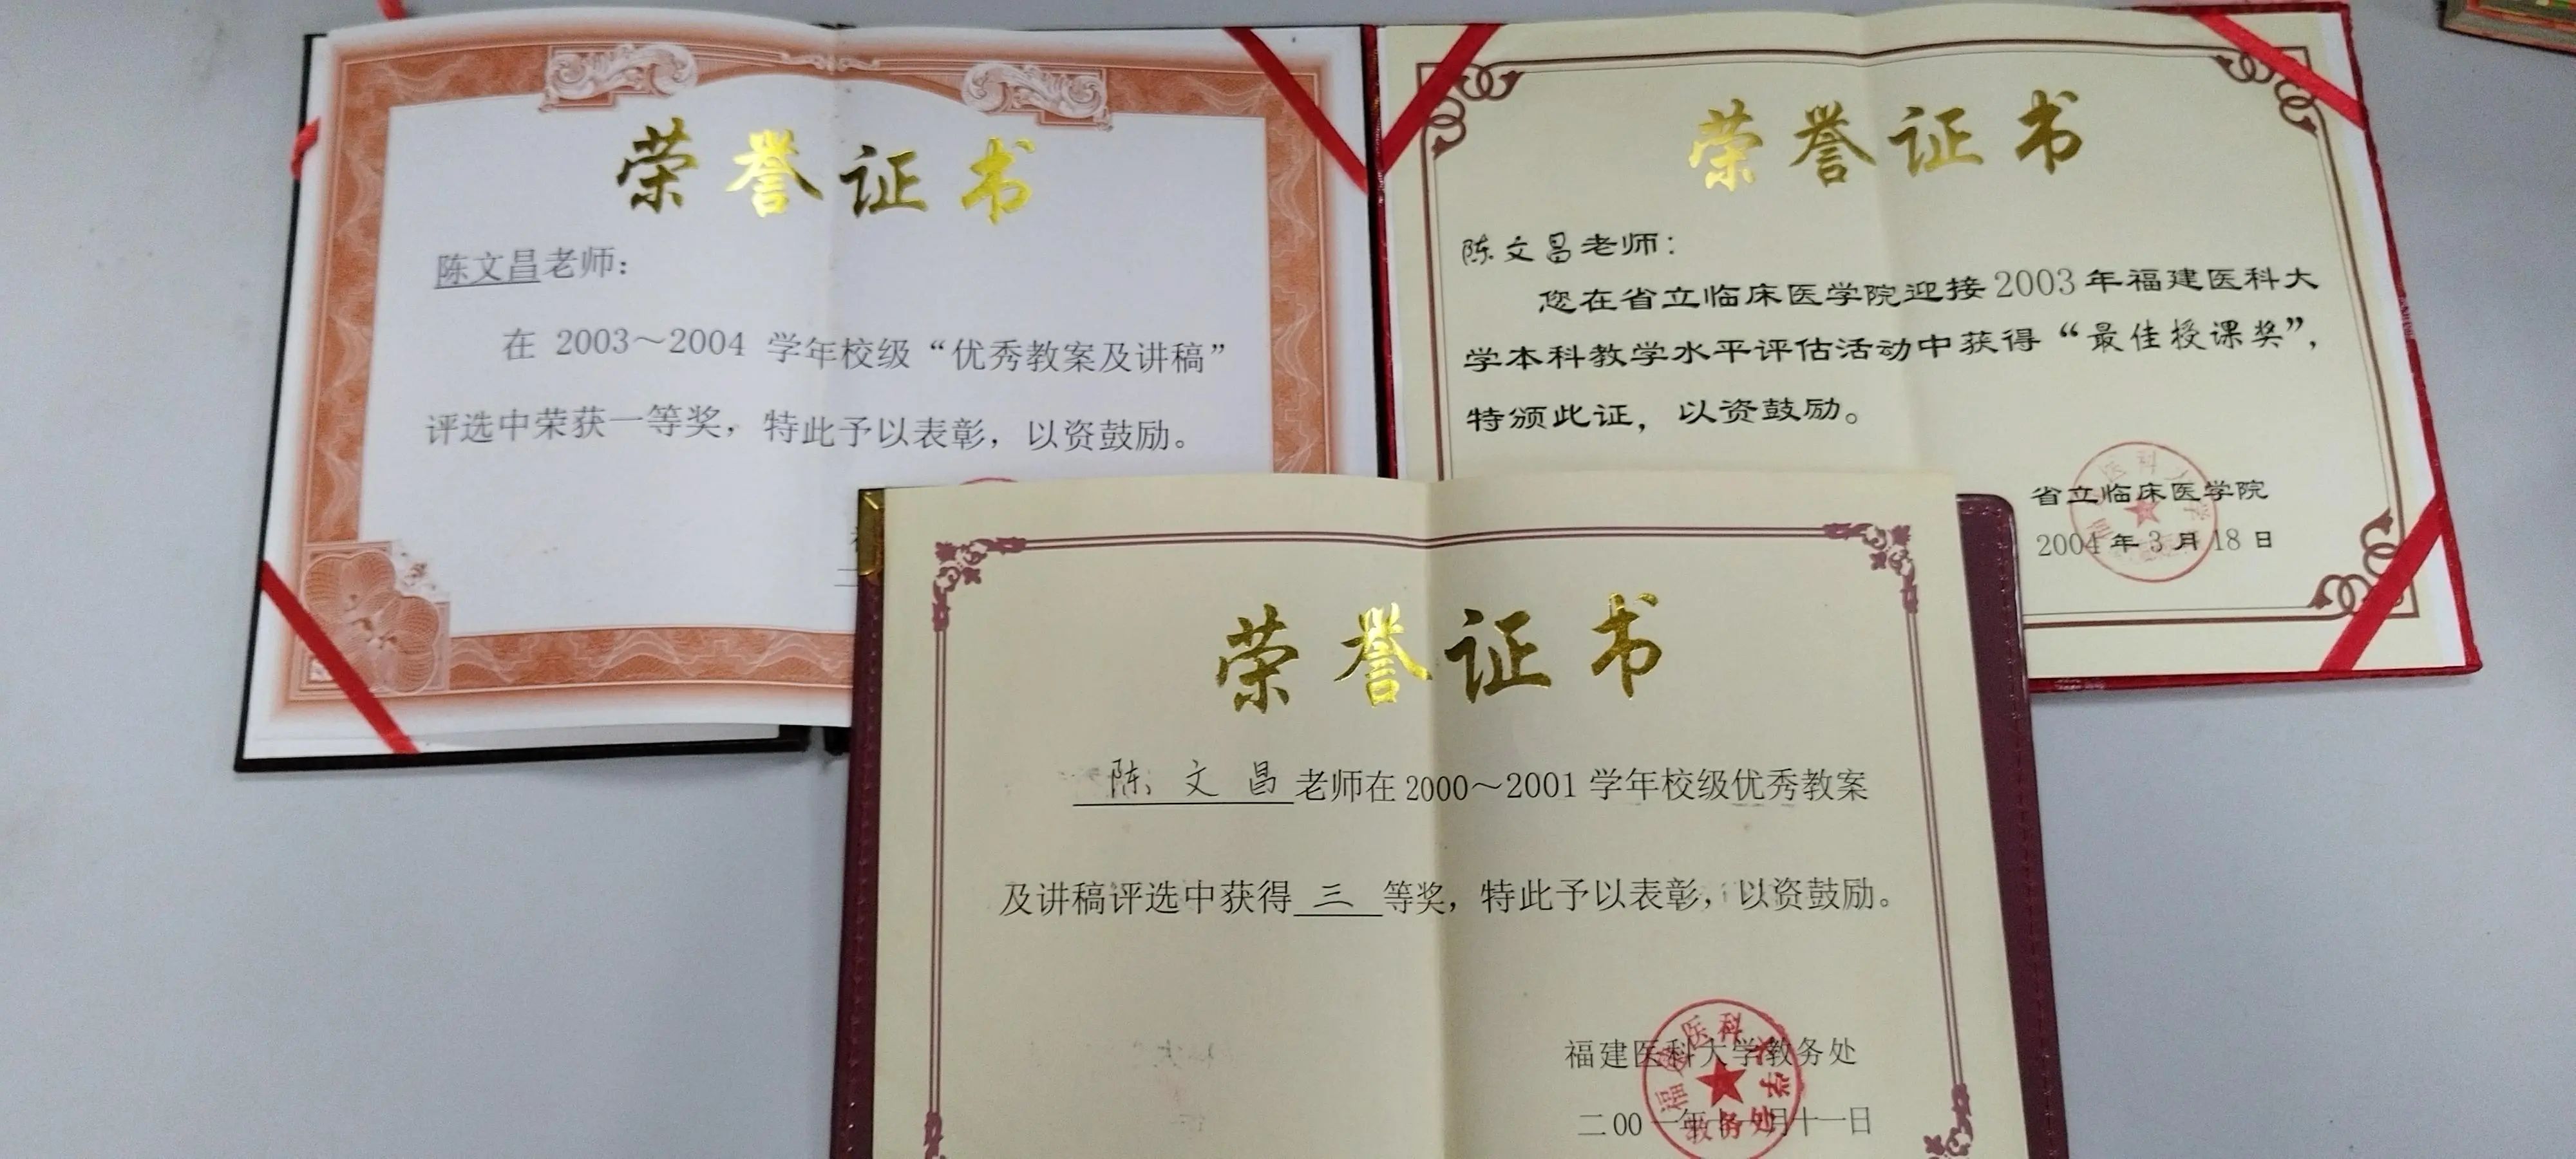 荣誉证书
陈文昌老师：
在 2003～2004 学年校级“优秀教案及讲稿”
评选中荣获一等奖，特此予以表彰，以资鼓励。
荣誉证书
陈文昌老师：
您在省立临床医学院迎接2003年福建医科大
学本科教学水平评估活动中获得“最佳授课奖”，
特颁此证，以资鼓励。
省立临床医学院
2004年3月18日
荣誉证书
陈文昌老师在2000～2001学年校级优秀教案
及讲稿评选中获得三等奖，特此予以表彰，以资鼓励。
福建医科大学教务处
福建医科大学
教务处